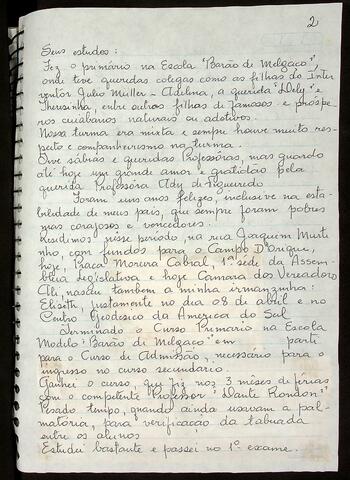 2
Seus estudos:
Fez o primário na Escola "Barão de Melgaço",
onde teve queridas colegas como as filhas do Inter
ventor Julio Müller - Adelina, a querida "Dely" e
Theresinha, entre outras filhas de famosos e próspe
ros cuiabanos naturais ou adotivos.
Nossa turma era mixta e sempre houve muito res-
peito e companheirismo na turma.
Tive sábias e queridas Professoras, mas guardo
até hoje um grande amor e gratidão pela
querida Professora Ady de Figueiredo.
Foram uns anos felizes, inclusive na esta-
bilidade de meus pais, que sempre foram pobres
mas corajosos e vencedores.
Residimos nesse período, na rua Joaquim Murti
nho, com fundos para o Campo D'Ourique,
hoje, Praça Moreira Cabral, 1ª sede da Assem-
bleia Legislativa e hoje Câmara dos Vereadores
Ali nasceu também a minha irmanzinha:
Elizeth, justamente no dia 08 de abril e no
Centro Geodésico da America do Sul
Terminado o Curso Primário na Escola
Modelo "Barão de Melgaço" em parti
para o Curso de Admissão, necessário para o
ingresso no curso secundário.
Ganhei o curso, que fiz nos 3 mêses de férias
com o competente Professor "Dante Rondon"
Pesado tempo, quando ainda usavam a pal-
matória, para verificação da tabuada
entre os alunos
Estudei bastante e passei no 1º exame.